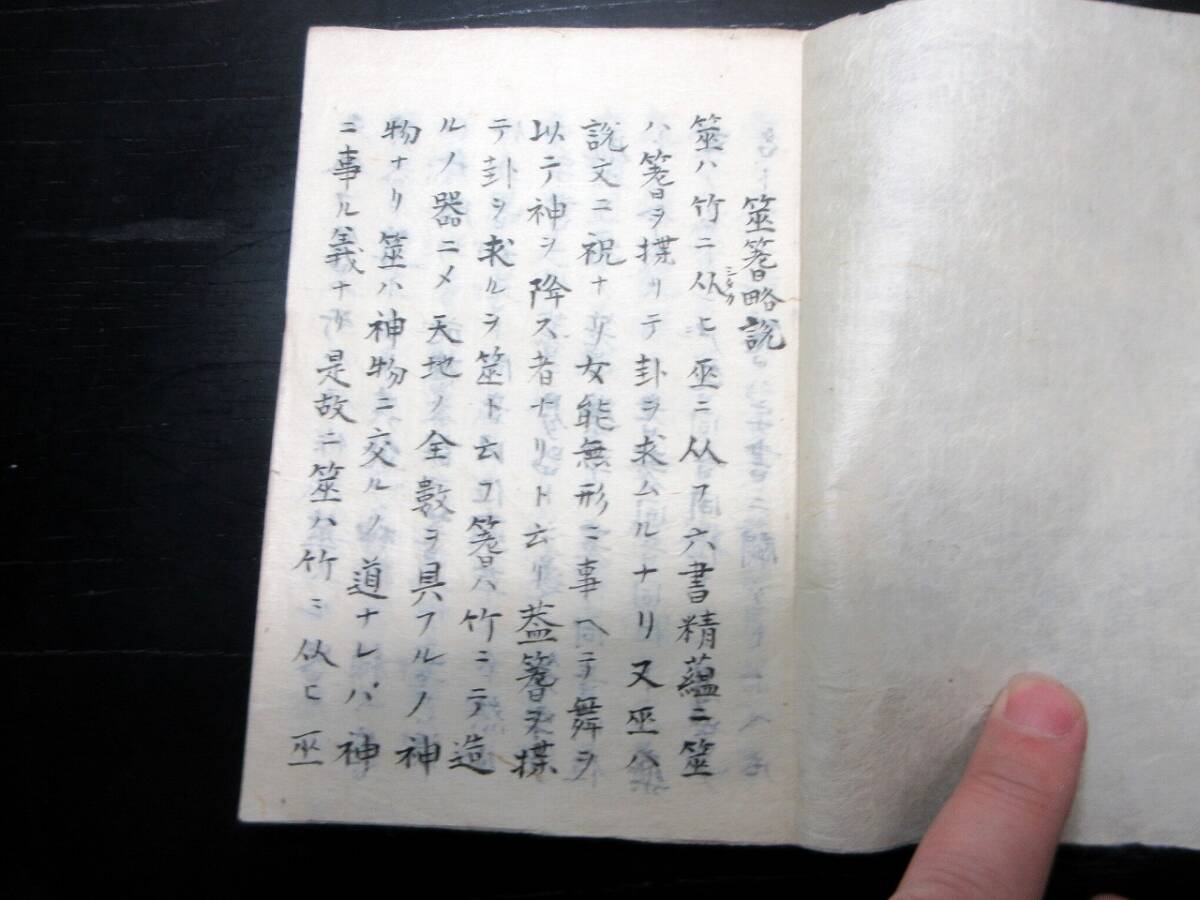 筮箸略説
筮ハ竹ニ从ヒ巫ニ从フ六書精蘊ニ筮
ハ箸ヲ揲リテ卦ヲ求ムルナリ又巫ハ
説文ニ祝ナリ女能無形ニ事ヘテ舞ヲ
以テ神ヲ降ス者ナリト云リ蓋箸ヲ揲
テ卦ヲ求ルヲ筮ト云フ箸ハ竹ニテ造
ルノ器ニメ天地ノ全數ヲ具フルノ神
物ナリ筮ハ神物ニ交ルノ道ナレバ神
ニ事ル義ナリ是故ニ筮ハ竹ニ从ヒ巫